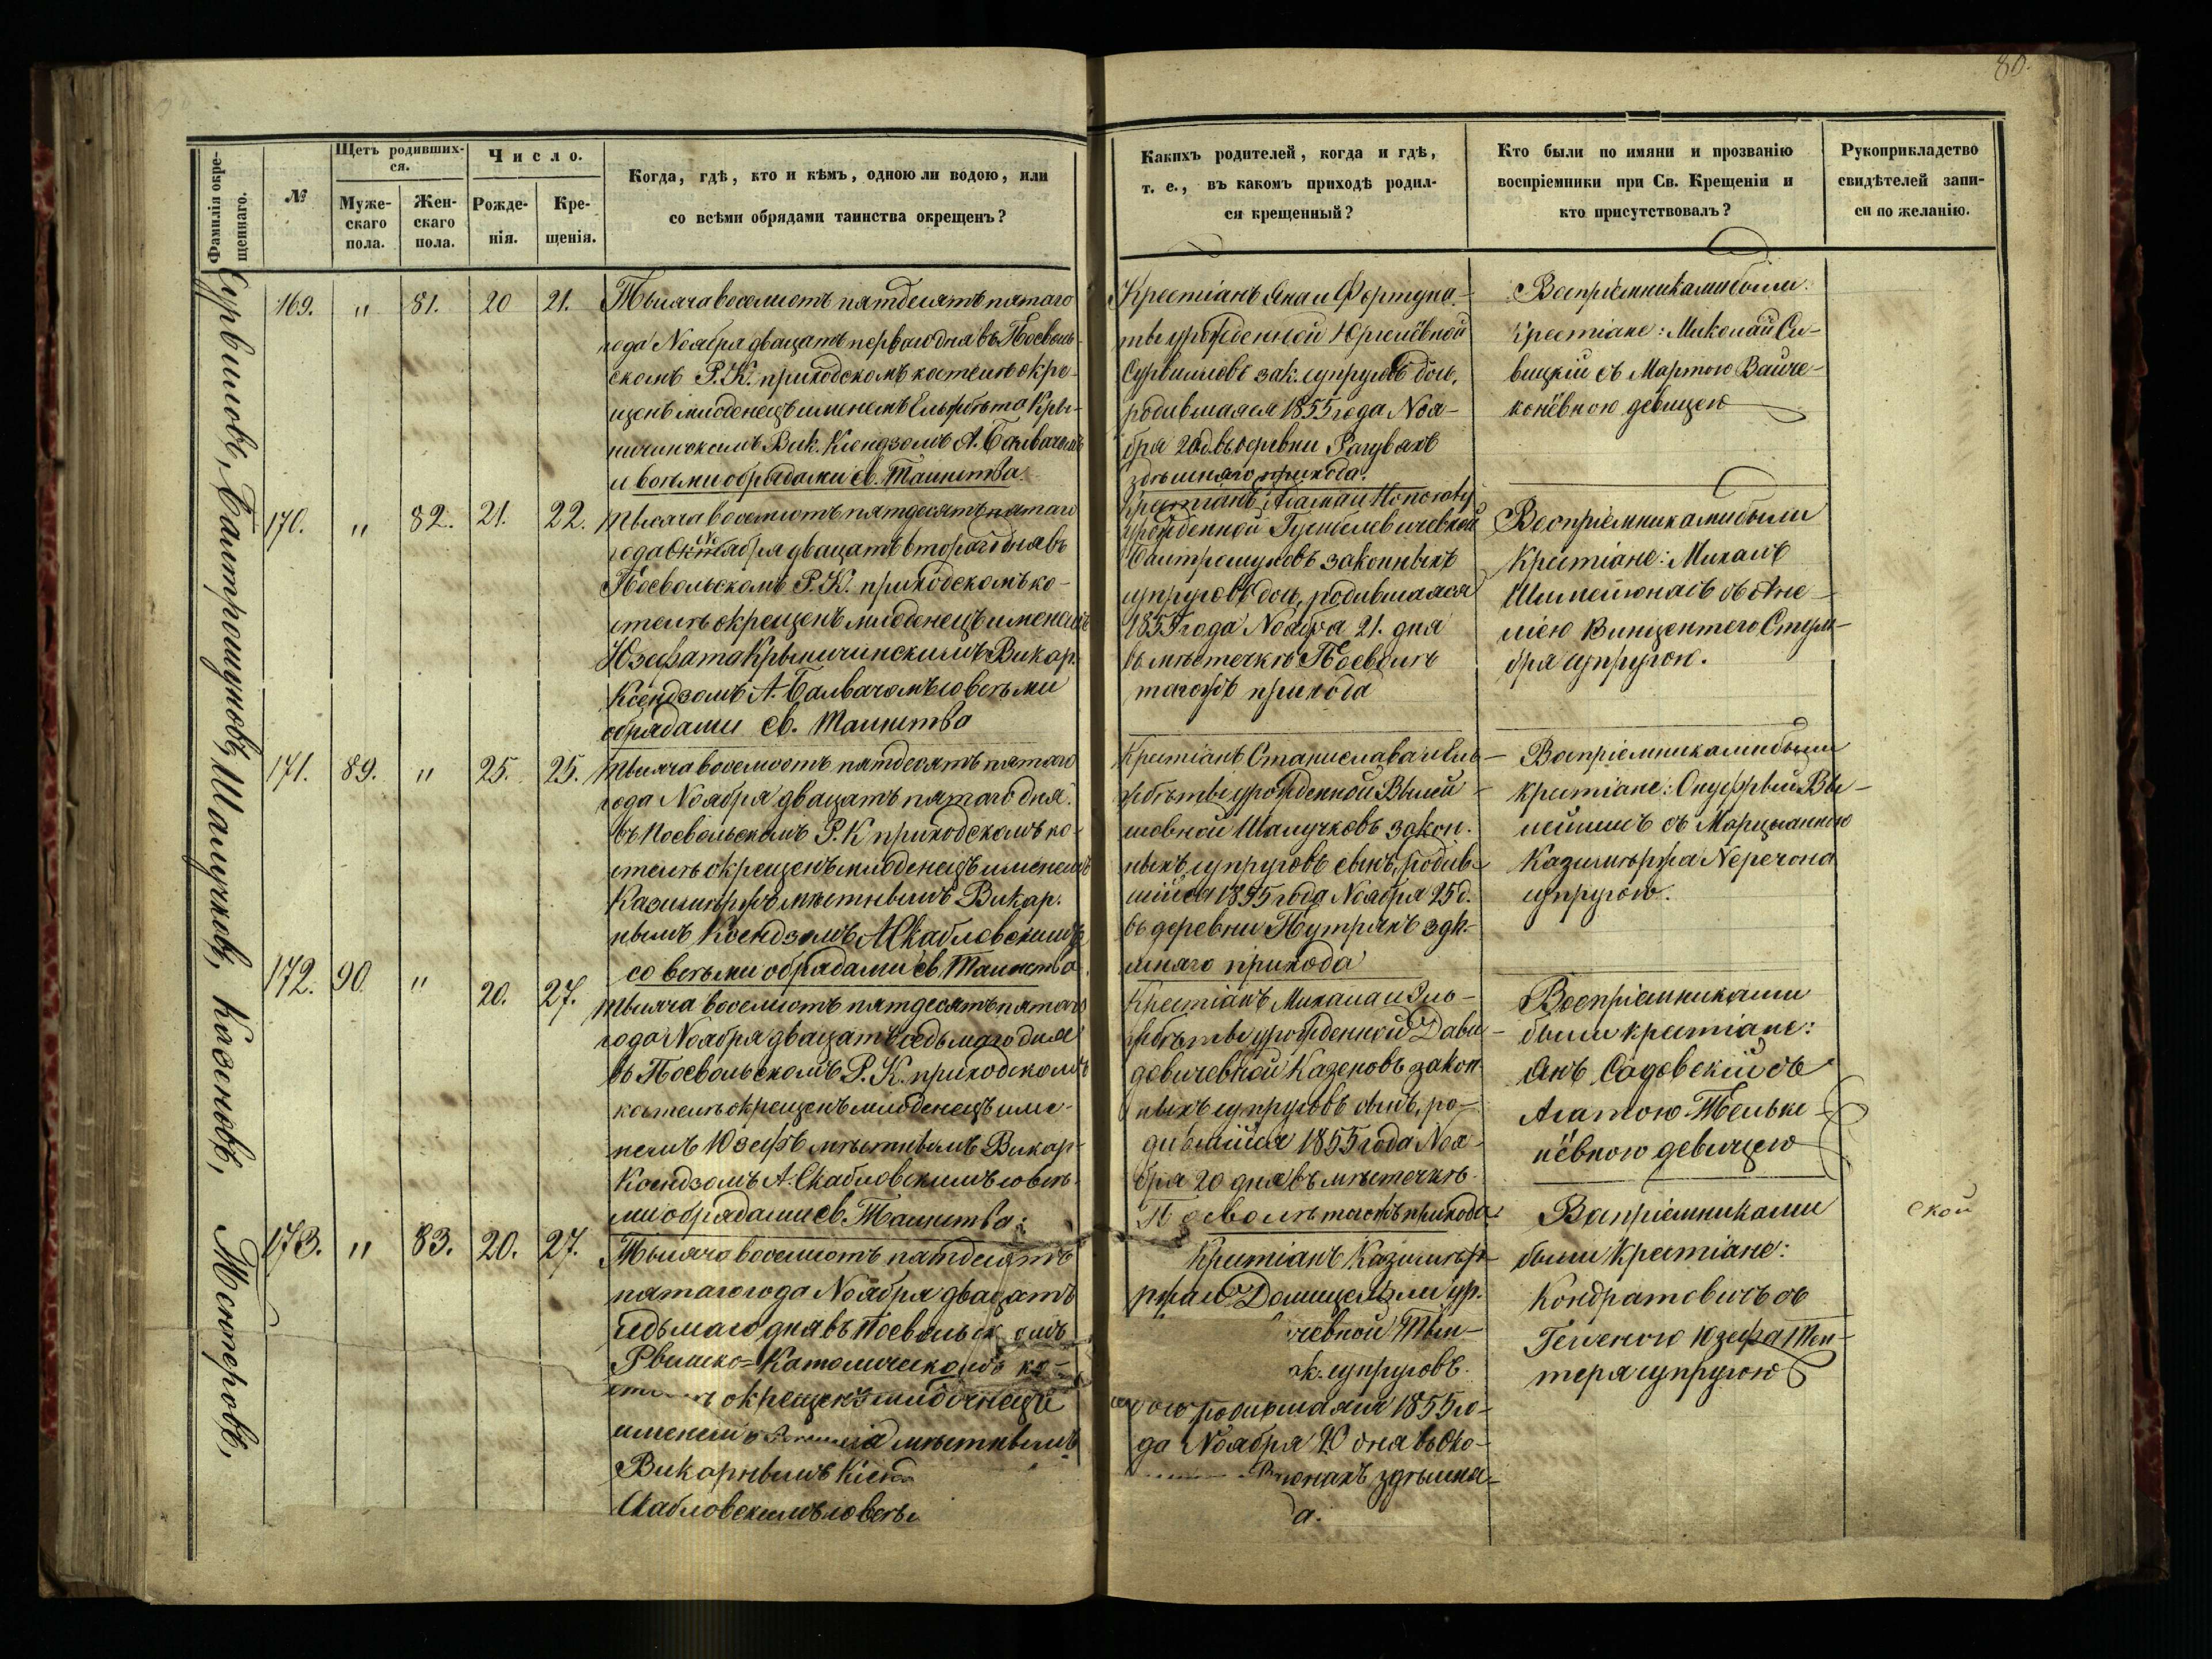 80.
Фамилія окре-
щеннаго.
№
Щетъ родивших-
ся.
Муже-
скаго
пола.
Жен-
скаго
пола.
Число.
Рожде-
нія.
Кре-
щенія.
Когда, гдѣ, кто и кѣмъ, одною ли водою, или
со всѣми обрядами таинства окрещенъ?
Какихъ родителей, когда и гдѣ,
т. е., въ какомъ приходѣ родил-
ся крещенный?
Кто были по имяни и прозванію
воспріемники при Св. Крещеніи и
кто присутствовалъ?
Рукоприкладство
свидѣтелей запи-
си по желанію.
Сурвиловъ,
169.
"
81.
20
21.
Тысяча восемсотъ пятдесятъ пятаго
года Ноября двацать перваго дня въ Посволь-
скомъ Р. К. приходскомъ костелѣ окре-
щенъ младенецъ именемъ Ельжбѣта Кры-
ничинскимъ Вик. Ксендзомъ А. Балвачомъ
и всѣми обрядами св. Таинства.
Крестіанъ Яна и Фортуна-
ты урожденной Юргелёвной
Сурвиловъ зак. супруговъ дочь,
родившаяся 1855 года Ноя-
бря 20 д. въ деревни
здѣшняго прихода.
Воспріемниками были:
Крестіане: Миколай Си-
вицкій съ Мартою Вайче-
конёвною девицею
Балтрошуновъ,
170.
"
82.
21.
22.
Тысяча восемсотъ пятдесятъ пятаго
года Октября двацать втораго дня въ
Посвольскомъ Р. К. приходскомъ ко-
стелѣ окрещенъ младенецъ именемъ
Юзефата Крыничинскимъ Викар.
Ксендзомъ А. Балвачомъ со всѣми
обрядами св. Таинства
Крестіанъ Адама и Гонораты
урожденной
законныхъ
супруговъ дочь, родившаяся
1855 года Ноября 21. дня
въ мѣстечкѣ Посволѣ
тагожъ прихода
Воспріемниками были
Крестіане: Михалъ
съ Ане-
лею Винцентего
супругою.
Шалучковъ,
171.
89.
"
25.
25.
Тысяча восемсотъ пятдесятъ пятаго
года Ноября двацать пятаго дня
въ Посвольскомъ Р. К приходскомъ ко-
стелѣ окрещенъ младенецъ именемъ
Казимѣржъ мѣстнымъ Викар.
нымъ Ксендзомъ А Скабловскимъ
со всѣми обрядами св. Таинства.
Крестіанъ Станислава и Ель-
жбѣты урожденной Вилей-
шовной Шалучковъ закон.
ныхъ супруговъ сынъ, родив-
шійся 1855 года Ноября 25 д.
въ деревни здѣ-
шняго прихода
Воспріемниками были
крестіане: Онуфрый Ви-
лейшисъ съ Марцыанною
Казимѣржа Neречона
супругою.
Казеновъ,
172.
90
"
20.
27.
Тысяча восемсотъ пятдесятъ пятаго
года Ноября двацать седьмаго дня
въ Посвольскомъ Р. К. приходскомъ
костелѣ окрещенъ младенецъ име-
немъ Юзефъ мѣстнымъ Викар-
Ксендзомъ А. Скабловскимъ со всѣ-
ми обрядами св. Таинства:
Крестіанъ Михала и Эль-
жбѣты урожденной Дави-
довичевной Казеновъ закон
ныхъ супруговъ сынъ, ро-
дившійся 1855 года Ноя-
бря 20 дня въ мѣстечкѣ
Посволѣ тагожъ прихода
Воспріемниками
были крестіане:
Янъ Садовскій съ
Агатою Тельке-
нёвною девицею
173.
"
83.
20.
27.
Тысяча восемсотъ пятдесятъ
пятаго года Ноября двацать
седьмаго дня въ Посвольск омъ
Рымско=Католическомъ ко-
окрещенъ младенецъ
именемъ мѣстнымъ
Викарнымъ Ксенд
Скабловскимъ со всѣ
Крестіанъ Казимѣр-
ржа и Домицели ур.
чевной
ак. супруговъ.
родившаяся 1855 го-
да Ноября 20 дня въ
здѣшня-
а.
Воспріемниками
были Крестіане:
Кондратовичъ съ
Геленою Юзефа
супругою
ской